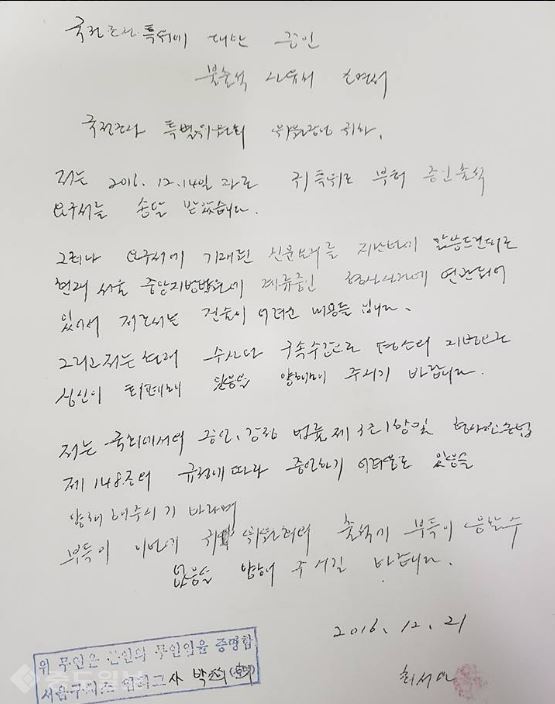 국정조사 특위에 대한 증인
불출석 사유서
국정조사 특별위원회 위원장님 귀하.
저는 2016. 12. 14일자로 귀 특위로 부터 증인출석
요구서를 송달 받았습니다.
그러나 요구서에 기재된 신문요지를 지난번에
현재 서울 중앙지방법원에 계류중인 형사사건에 연관되어
있어서 저로서는 진술이 어려운 내용들 입니다.
그리고 저는 현재 수사와 구속수감으로 평소의 지병으로
심신이 피폐해 있음을 양해해 주시기 바랍니다.
저는 국회에서의 증언, 감정 법률 제3조1항 및 형사소송법
제148조의 규정에 따라 증언하기 어려움도 있음을
양해 해주시기 바라며
부득이 이번 귀 위원회의 출석기 부득이 응할수
없음을 양해 주시길 바랍니다.
2016. 12. 21
최서원
위 무인은 본인의 무인임을 증명함
서울구치소 교사 박